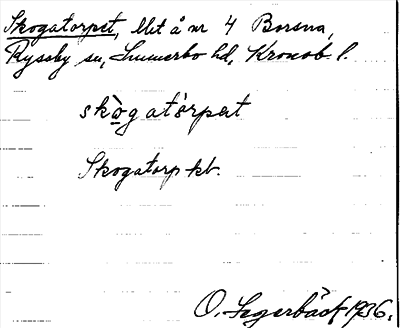 Skogatorpet, lht å nr 4 Borsna,
Ryssby sn, Sunnerbo hd, Kronob. l.
skògatårpert
Skogatorp kb.
O. Segerbäck 1936.